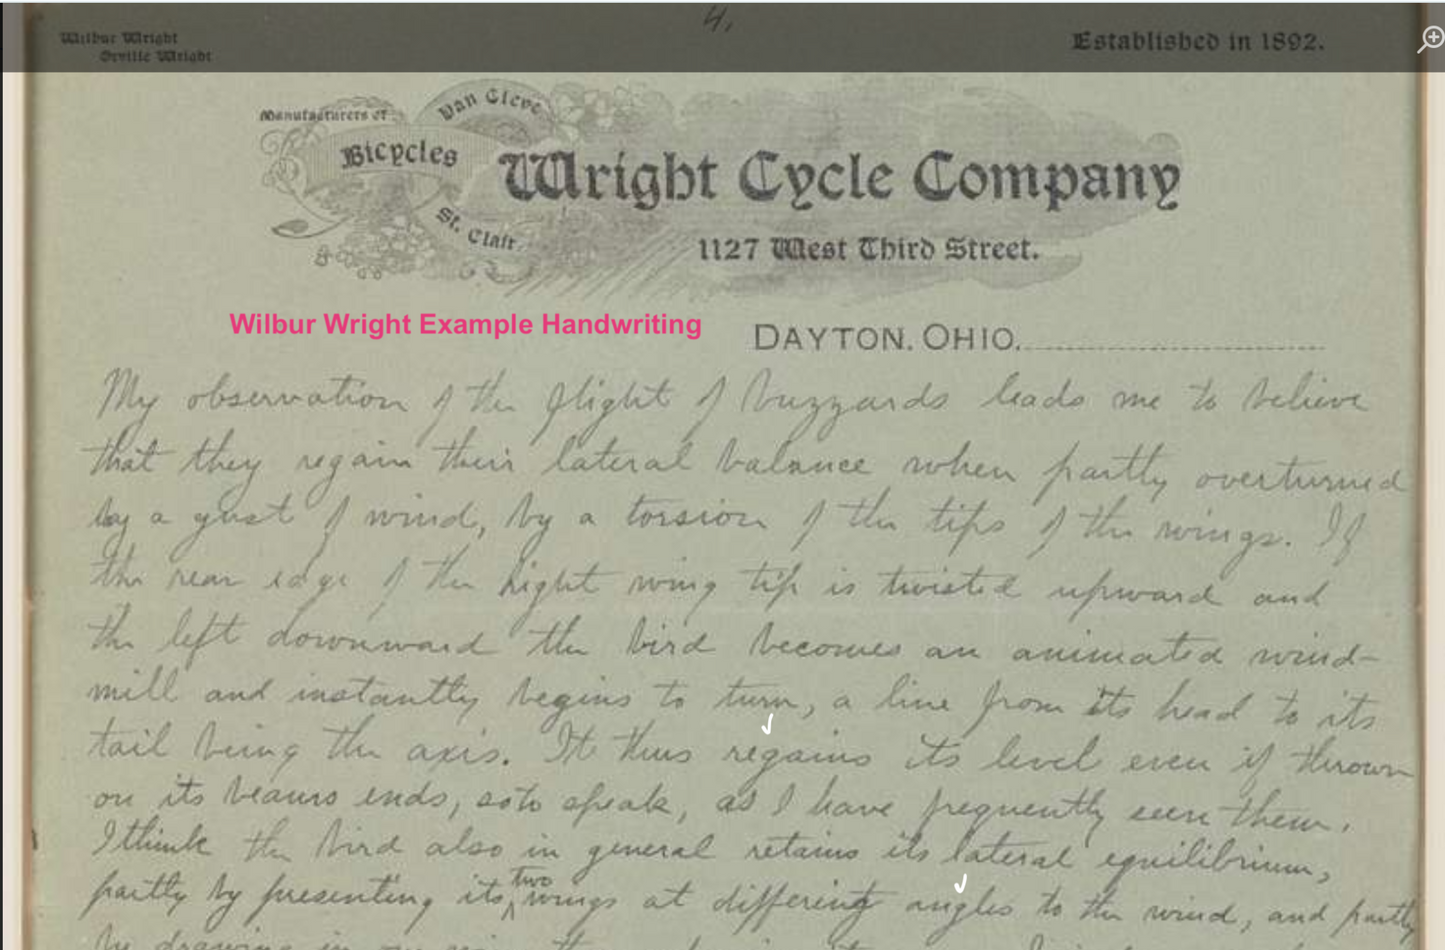 4.
Wilbur Wright
Orville Wright
Established in 1892.
Manufacturers of
Bicycles
Van Cleve
St. Clair
Wright Cycle Company
1127 West Third Street.
Wilbur Wright Example Handwriting
DAYTON, OHIO.
My observation of the flight of buzzards leads me to believe
that they regain their lateral balance when partly overturned
by a gust of wind, by a torsion of the tips of the wings. If
the rear edge of the right wing tip is twisted upward and
the left downward the bird becomes an animated wind-
mill and instantly begins to turn, a line from its head to its
tail being the axis. It thus regains its level even if thrown
on its beams ends, so to speak, as I have frequently seen them.
I think the bird also in general retains its lateral equilibrium,
partly by presenting its two wings at differing angles to the wind, and partly
by drawing in one wing